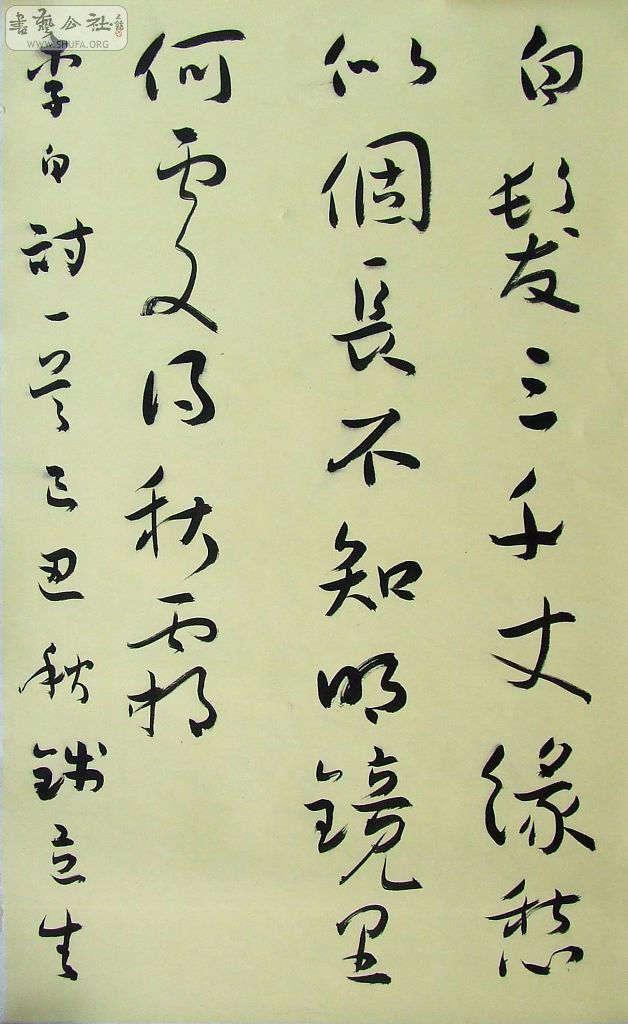 白髮三千丈緣愁
似個長不知明鏡里
何處得秋霜
李白詩一首己丑秋錢立生
書藝公社
WWW.SHUFA.ORG